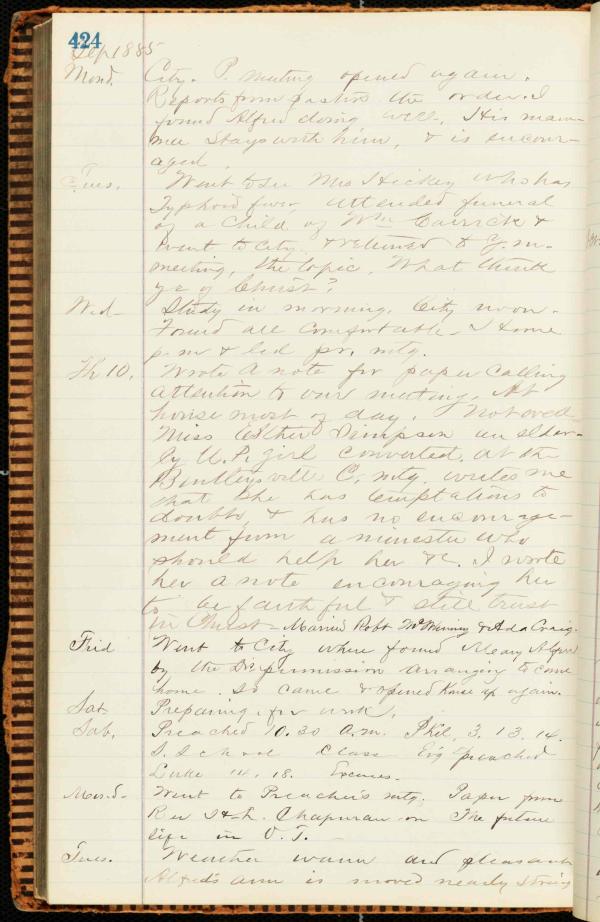 424
Sep 1885
Mond. City. P. meeting opened again.
Reports from pastors the order. I
found Alfred doing well. His mam-
mee stays with him, & is encour-
aged.
Tues. Went to see Mrs Hickey who has
Typhoid fever, attended funeral
of a Child of Wm Carrick &
went to City & returned to Y. m.
meeting, the topic, What think
ye of Christ?
Wed- Study in morning. City noon.
Found all comfortable - I home
p.m & led pr. mtg.
Th 10. Wrote a note for paper calling
attention to our meeting. At
house most of day.
Miss Esther Dimpsen an elder-
ly U.P. girl converted, at the
Bentleysville C. mtg. writes me
that she has temptations to
doubts, & has no encourage-
ment from a minester who
should help her &c. I wrote
her a note encouraging her
to be faithful & still trust
in Christ - Married Robt & Ada Craig.
Frid Went to City where found Mary Alfred
by the Drs permission arranging to come
home. So came & opened house up again.
Sat. Preparing for work.
Sab. Preached 10.30 a.m. Phil, 3. 13. 14.
S. School Class Ev'g preached
Luke 14. 18. Excuses.
Mond- Went to Preacher's mtg. Paper from
Rev Chapman on The future
life in O. T.
Tues. Weather warm and pleasant
Alfred's arm is moved nearly